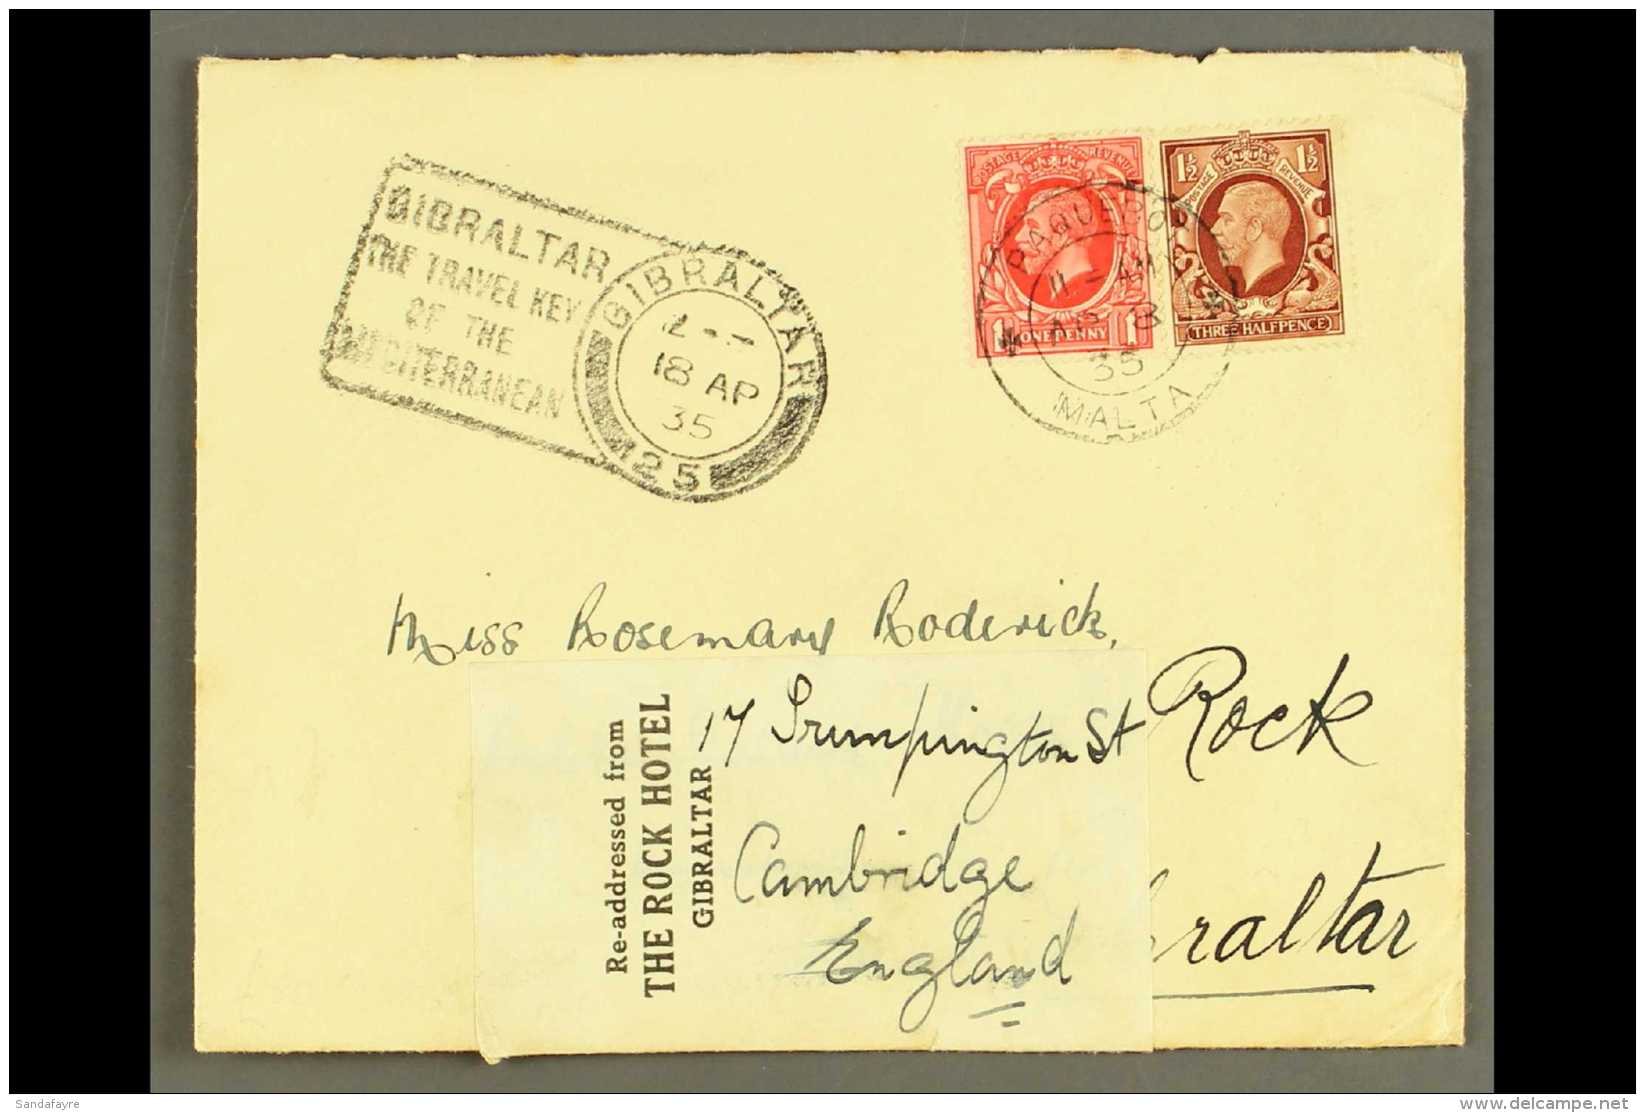 GIBRALTAR
THE TRAVEL KEY
OF THE
MEDITERRANEAN
GIBRALTAR
18 AP
35
125
POSTAGE REVENUE
1 ONE PENNY 1
1½ 1½
POSTAGE REVENUE
THREE HALFPENCE
PAQUEBOT
11 - AM
AP 8
35
MALTA
Miss Rosemary Roderick,
Rock
Re-addressed from
THE ROCK HOTEL
GIBRALTAR
17 Trumpington St
Cambridge
England
raltar
Sandafayre
delcampe.net